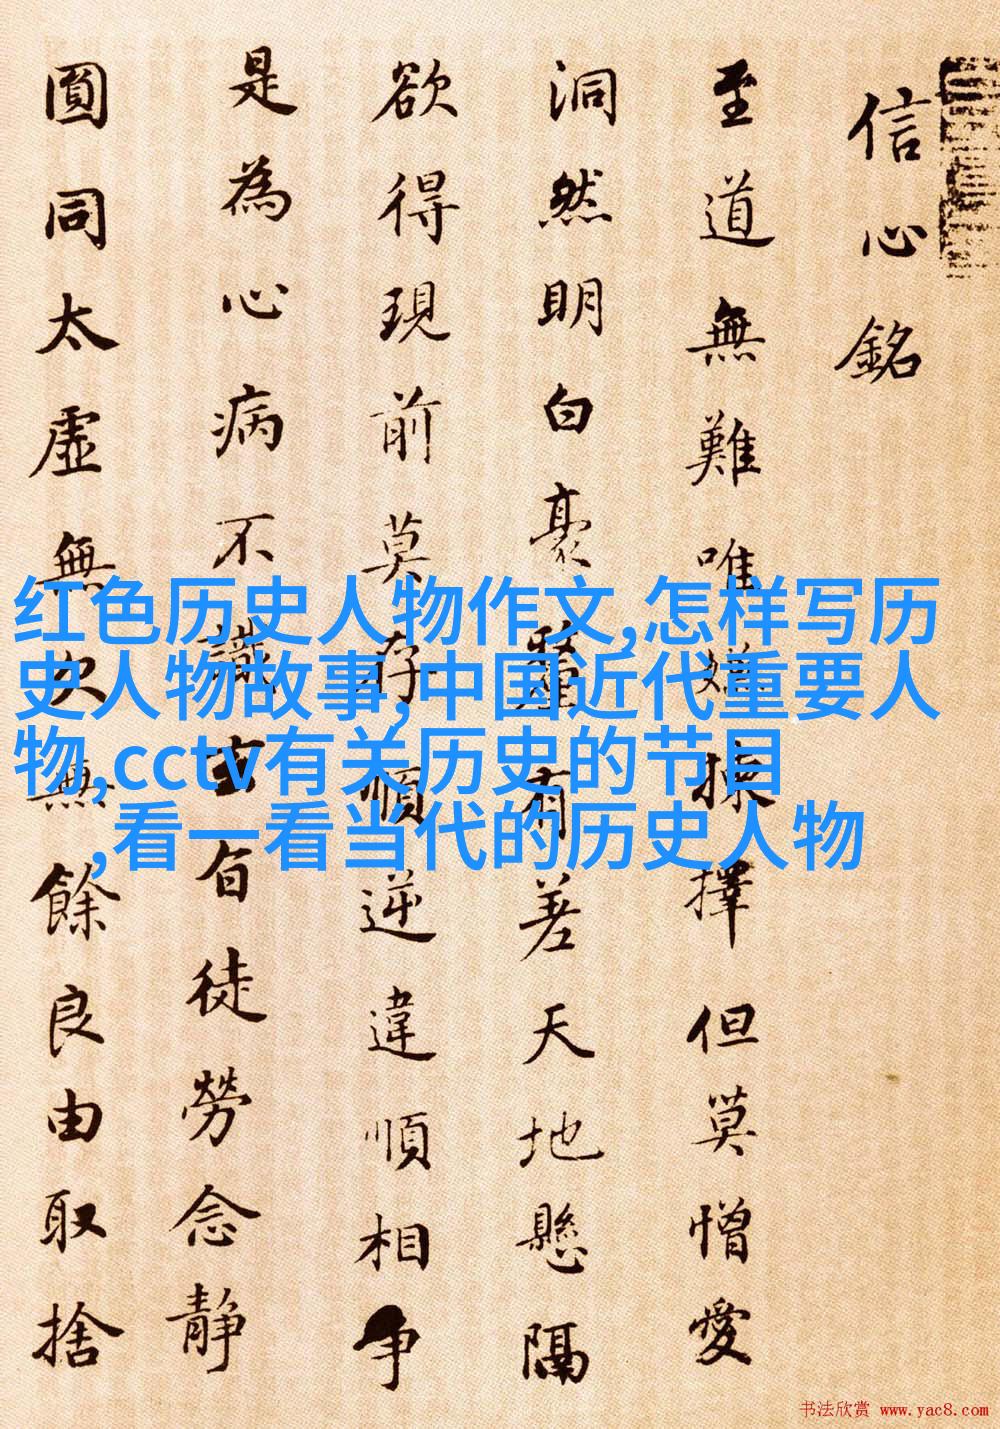 信心銘
至道無難唯嫌揀擇但莫憎愛
洞然明白豪釐有差天地懸隔
欲得現前莫存順逆違順相争
是為心病不識玄旨徒勞念静
圓同太虛無欠無餘良由取捨
红色历史人物作文,怎样写历
史人物故事,中国近代重要人
物,cctv有关历史的节目
,看一看当代的历史人物
书法欣赏 www.yac8.com